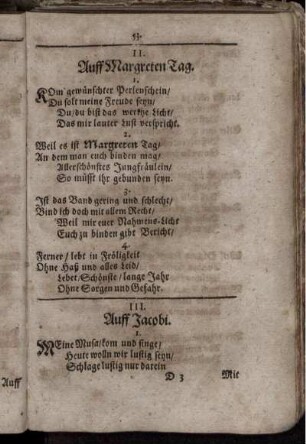 53.
II.
Auff Margreten Tag.
1.
KOm gewünschter Perlenschein/
Du solt meine Freude seyn/
Du/du bist das werthe Licht/
Das mir lauter Lust verspricht.
2.
Weil es ist Margreten Tag/
An dem man euch binden mag/
Allerschönstes Jungfräulein/
So müsst ihr gebunden seyn.
3.
Ist das Band gering und schlecht/
Bind ich doch mit allem Recht/
Weil mir euer Nahmens-Licht
Euch zu binden gibt Bericht/
4.
Ferner/ lebt in Fröligkeit
Ohne Haß und alles Leid/
Lebet/Schönste/ lange Jahr
Ohne Sorgen und Gefahr.
III.
Auff Jacobi.
1.
MEine Musa/kom und singe/
Heute wolln wir lustig seyn/
Schlage lustig nur darein
D 3
Mit
Auff